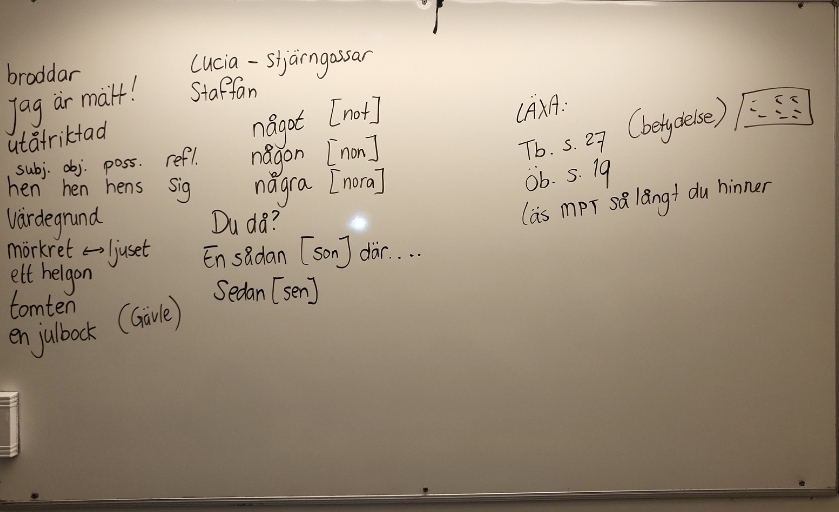 broddar
Jag är mätt!
utåtriktad
subj. obj. poss. refl.
hen hen hens sig
Värdegrund
mörkret ↔ ljuset
ett helgon
tomten
en julbock (Gävle)
Lucia - stjärngossar
Staffan
något [not]
någon [non]
några [nora]
Du då?
En sådan [son] där....
Sedan [sen]
LÄXA:
Tb. s. 27 (betydelse)
Öb. s. 19
Läs MPT så långt du hinner